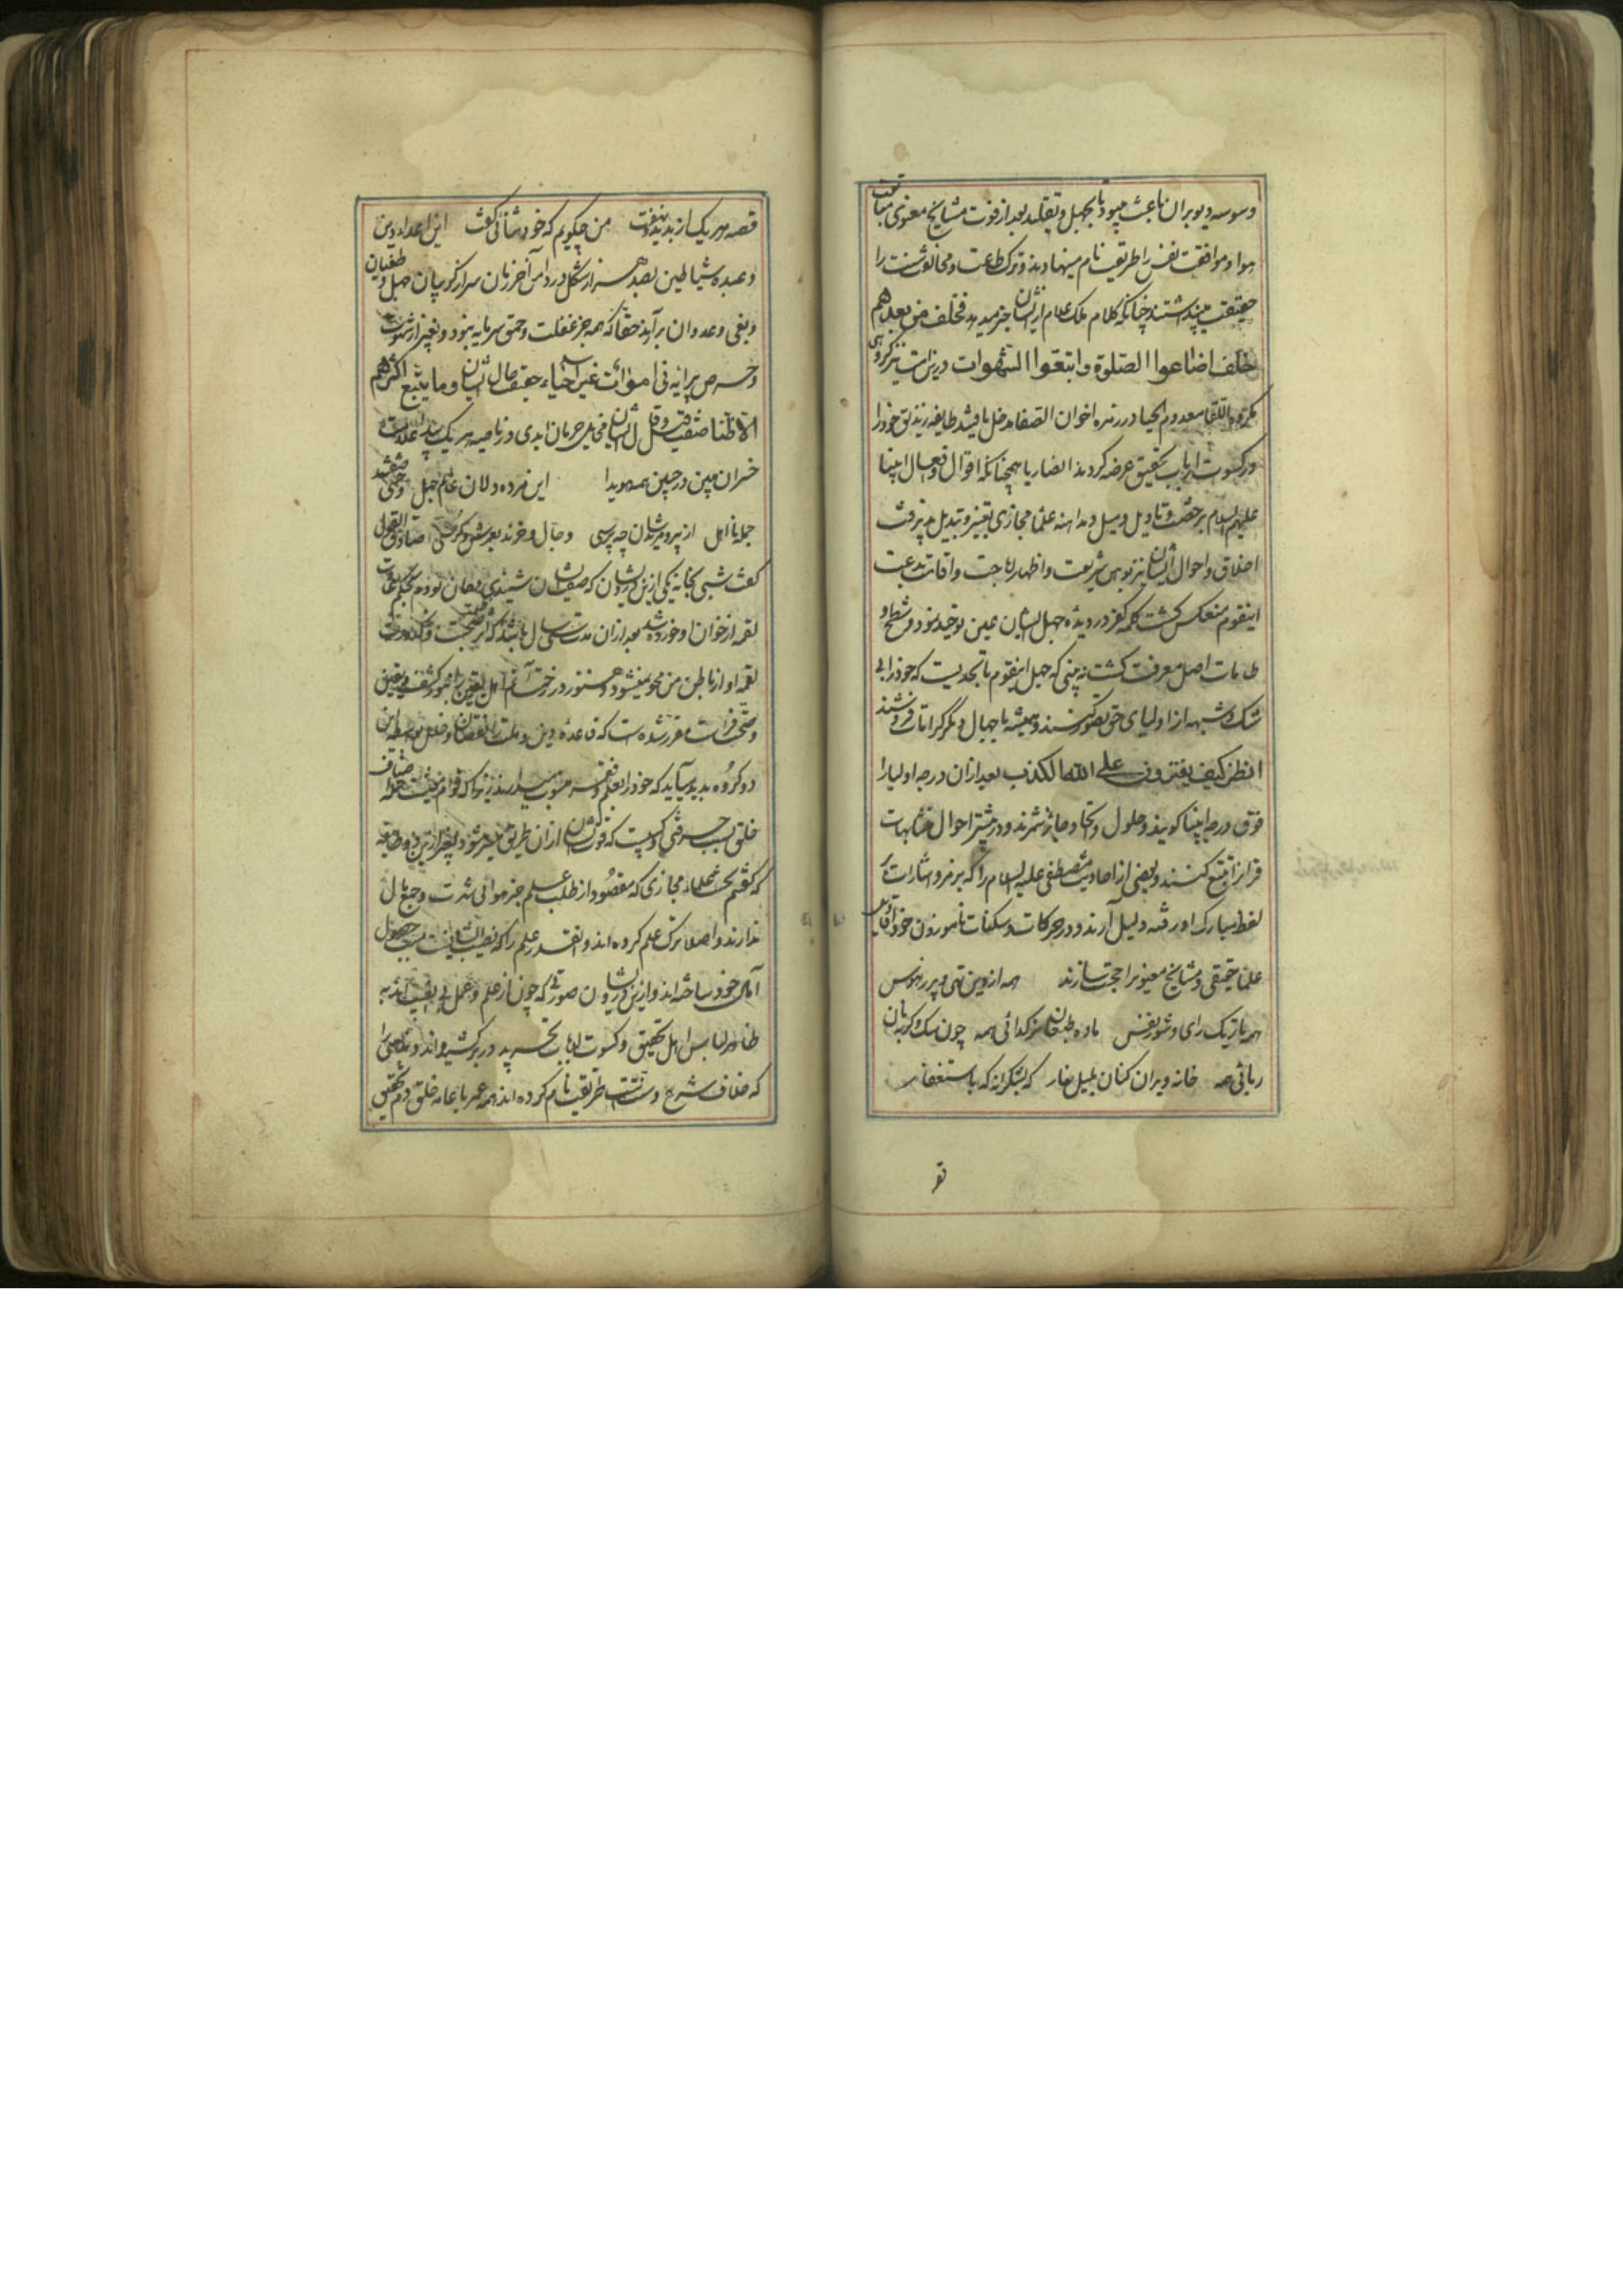 وسوسه دیو بران باعث میبود تا بجهل و تقلید بعد از فوت مشایخ معنوی متابعت
هوا و موافقت نفس را طریقت نام مینهادند و ترک طاعت و مخالفت سنت را
حقیقت می‌پنداشتند چنانکه کلام ملک علام ازیشان خبر میدهد فخلف من بعدهم
خلف اضاعوا الصلوة واتبعوا الشهوات درین است نیز گروهی
مکروه اللقا معدوم الحیا در زمره اخوان الصفا مدخل یافتند طایفه زندیق خود را
در کسوت ارباب تحقیق عرضه کردند همچنانکه اقوال و افعال انبیا
علیهم السلام برخصت و تاویل و میل و مداهنه علماء مجازی تغییر و تبدیل پذیرفت
اخلاق و احوال ایشان نیز شریعت و اظهار اباحت و اقامت بدعت
اینقوم منعکس گشت کلمه کفر در دیده جهل ایشان عین توحید نمود و شطح و
طامات اصل معرفت گشت نه بینی که جهل اینقوم تا بحدیست که خود را بی
شک و شبهه از اولیای حق تصور کنند و همیشه با جهال دیگر کرامات فروشند
انظر کیف یفترون علی الله الکذب بعد ازان درجه اولیا را
فوق درجه انبیا گویند و حلول و اتحاد جایز شمرند و در بیشتر احوال متشابهات
قرانرا تتبع کنند و بعضی از احادیث مصطفی علیه السلام را که بر رمز و اشارات
لفظ مبارک او رفته دلیل آرند و در حرکات و سکنات ناموزون خود اقاویل
علماء حقیقی و مشایخ معنوی را حجت سازند همه از دین تهی و پر ز هوس
همه باریک رای و شوم نفس ماده طبعان نر گدائی همه چون سک و گربه نان
ربائی همه خانه ویران کنان بلیل و نهار که بشکرانه که باستغفار
قصه
قصه هر یک از بد بنهفت من چگویم که خود سنائی گفت این اعداء دین
و عبده شیاطین بصد هزار شکل در دامن آخر زمان سر از گریبان جهل و طغیان
و بغی و عدوان برآرند حقا که همه جز غفلت و حمق سرمایه نبود و بغیر از شهوت
و حرص پیرایه نی اموات غیر احیاء حقیقت حال ایشان وما یتبع اکثرهم
الا ظنا صفت وقال ایشان حرمان ابدی در ناصیه هر یک پیدا علامت
خسران مبین در جبین همه هویدا این مرده دلان عالم جهل
جمله نااهل از پیر و مریدشان چه پرسی دجال و خرند بعرش و کرسی صادق القولی
گفت شبی بخانه یکی ازین درویشان که صفتشان شنیدی مهمان بودم بحکم عادت
لقمه از خوان او خورده شد بعد ازان مدت سی سال باشد که اثر ظلمت و کدورت
لقمه او از باطن من محو نمیشود و هنوز در اهل یقین را بنور کشف یقین
و صحت فراست مقرر شده است که قاعده دین و ملت را نقصان و خلل بواسطه این
دو گروه پدید میآید که خود را بعلم و فقر منسوب میدارند زیراکه قوام معیشت اصناف
خلق بسبب حرفتی و کسبیست که قوتشان ازان طریق میسر میشود بغیر ازین دو طایفه
که گفتم یکی علماء مجازی که مقصود از طلب علم جز مولی شدن و جمع مال
ندارند و اصلا ترک عمل کرده اند و نقد علم را که نصیب ایشانست سبب حصول
آمال خود ساخته اند و ازین درویشان صورتی که چون از علم و عمل بی نصیب اند به
ظاهر لباس اهل تحقیق و کسوت ارباب تجرید در بر کشیده اند و معاصی را
که خلاف شرع و سنتست طریقت نام کرده اند همه عمر با عامه خلق دم تحقیق